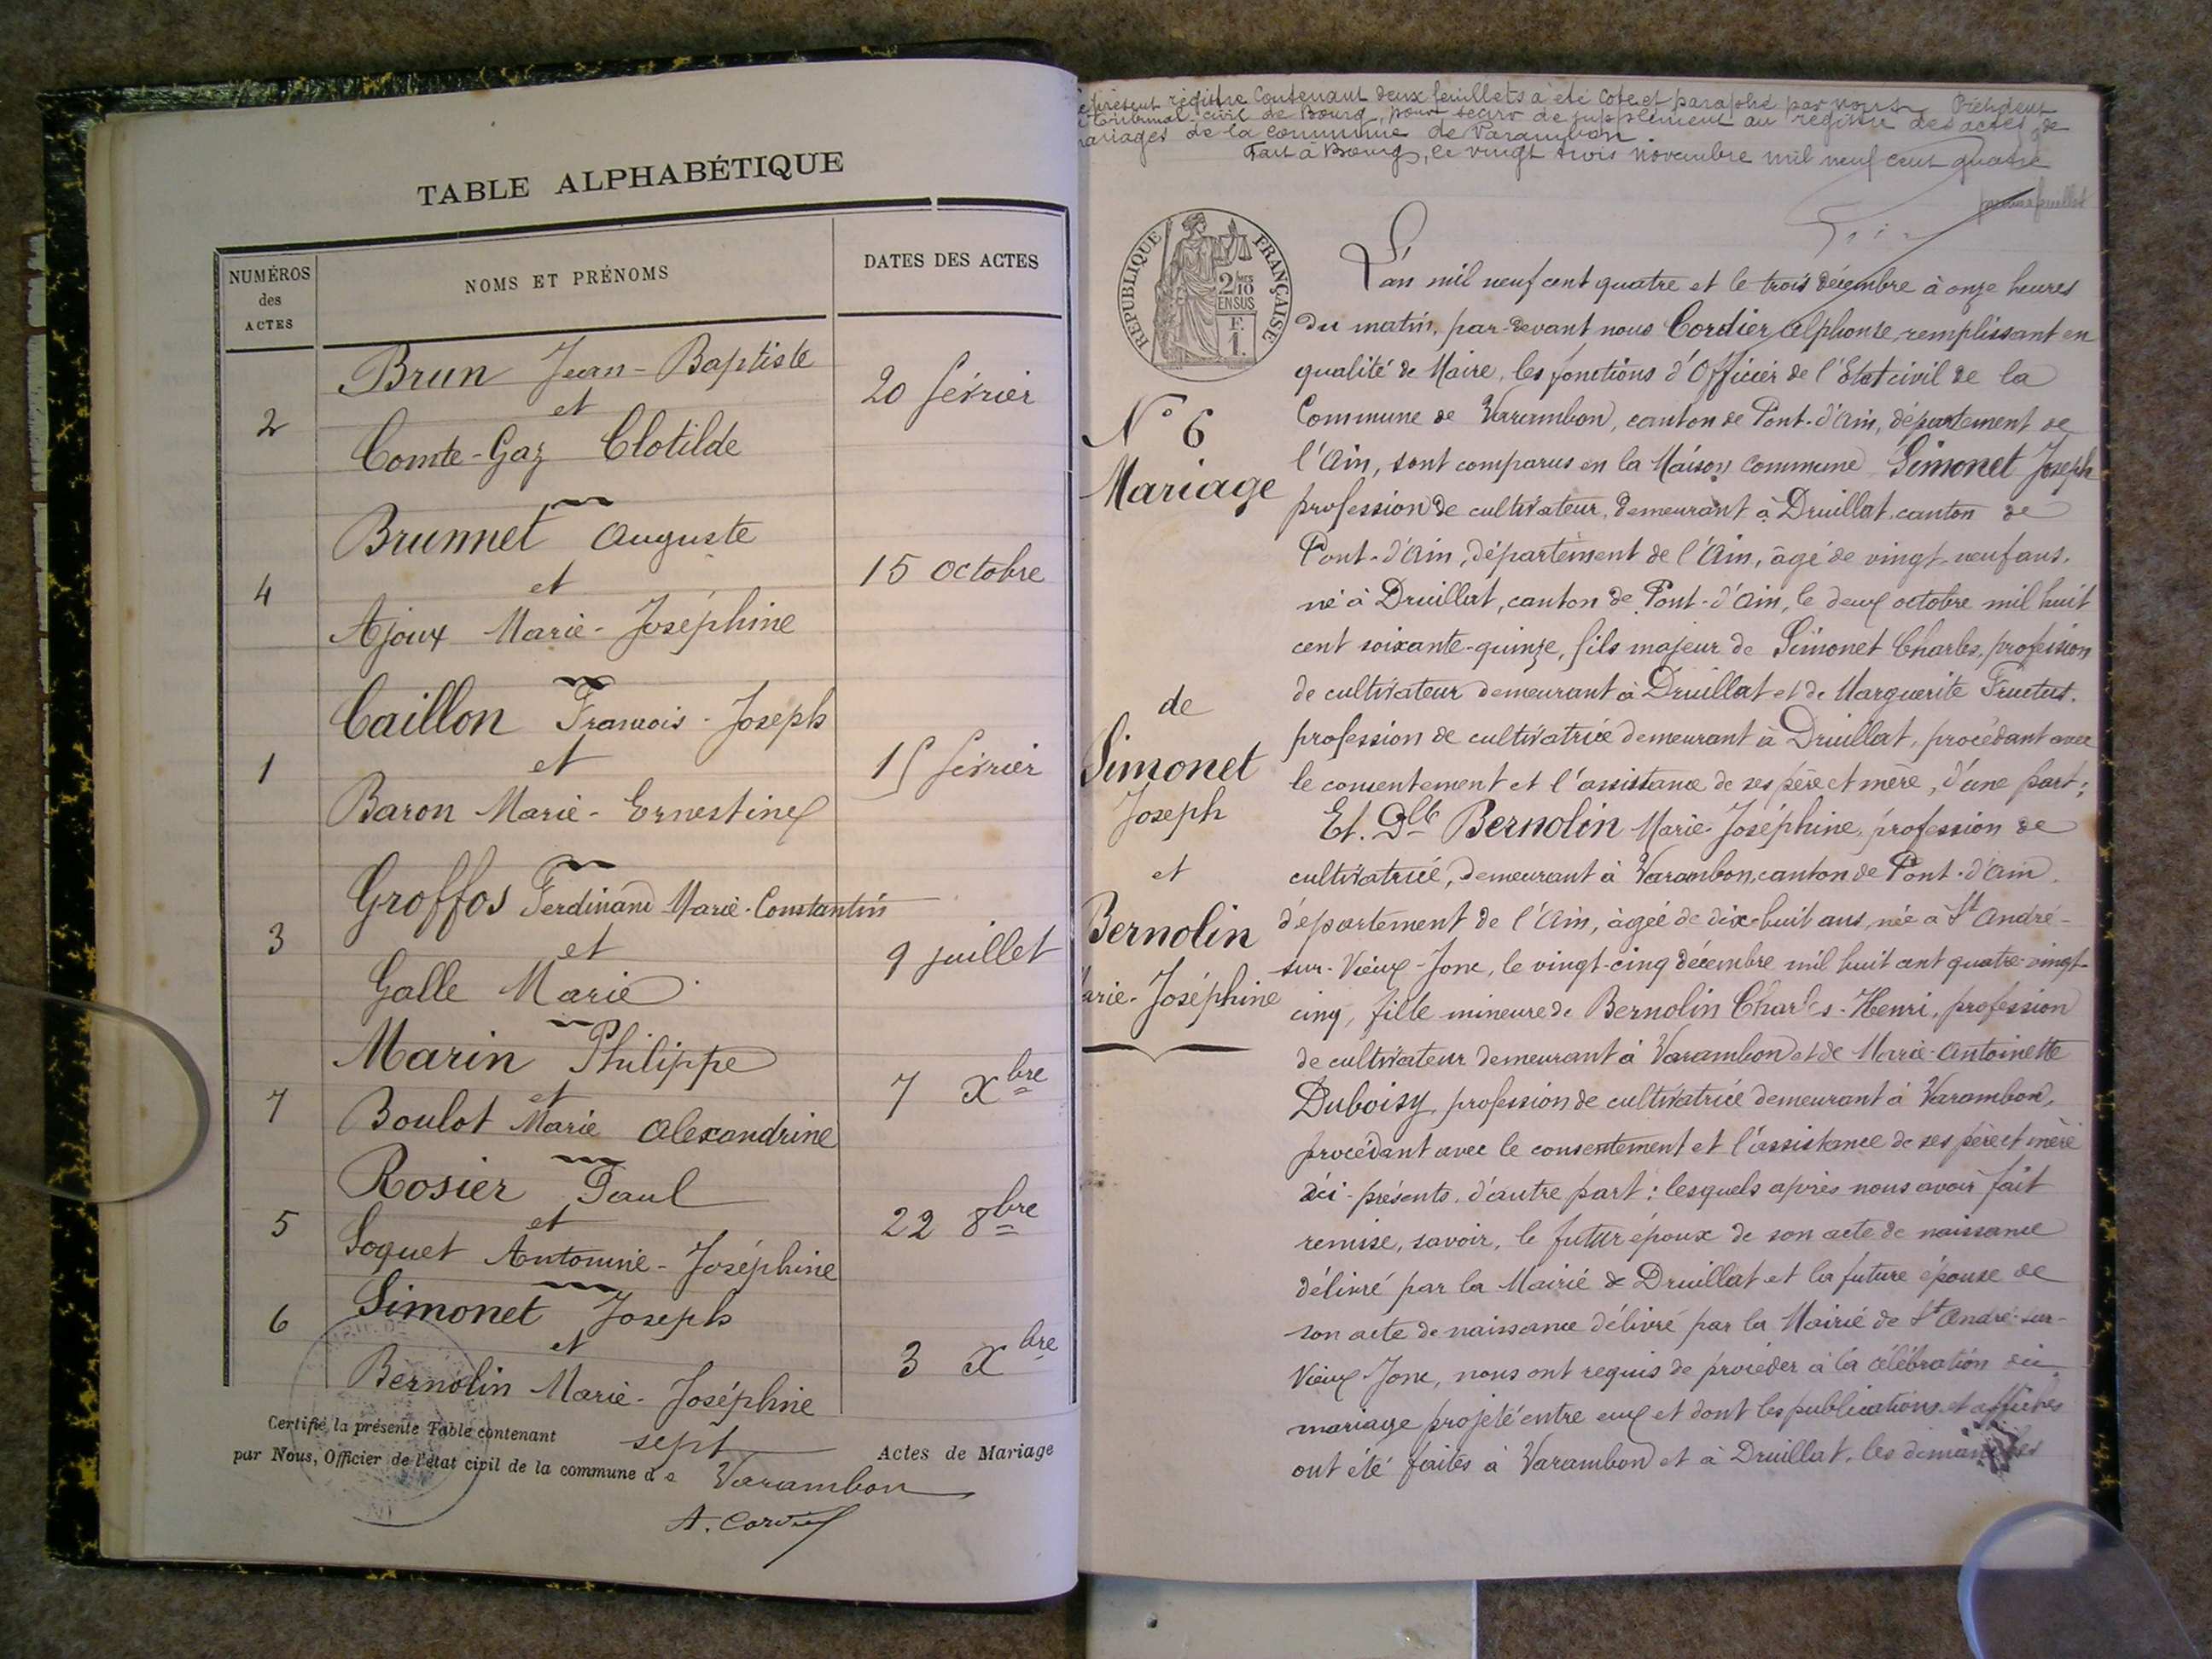 TABLE ALPHABÉTIQUE
NUMÉROS
des
ACTES
NOMS ET PRÉNOMS
DATES DES ACTES
Brun Jean-Baptiste
et
2
20 février
Comte-Gaz Clotilde
Brunnet Auguste
et
4
15 octobre
Ajoux Marie-Joséphine
Caillon François-Joseph
et
1
15 février
Baron Marie-Ernestine
Groffos Ferdinand Marie-Constantin
et
3
9 juillet
Galle Marie
Marin Philippe
et
7
7 Xbre
Boulot Marie Alexandrine
Rosier Paul
et
5
22 8bre
Soquet Antonine-Joséphine
Simonet Joseph
et
6
3 Xbre
Bernolin Marie-Joséphine
Certifié la présente Table contenant sept Actes de Mariage
par Nous, Officier de l'état civil de la commune de Varambon
A. Cordier
présent régistre contenant deux feuillets a été coté et paraphé par nous Président
tribunal civil de Bourg, pour servir de supplément au régistre des actes de
mariages de la commune de Varambon.
Fait à Bourg, le vingt trois novembre mil neuf cent quatre
premier feuillet
RÉPUBLIQUE FRANÇAISE
2/10
EN SUS
F.
1.
N° 6
Mariage
de
Simonet
Joseph
et
Bernolin
Marie-Joséphine
L'an mil neuf cent quatre et le trois décembre à onze heures
du matin, par-devant nous Cordier Alphonse, remplissant en
qualité de Maire, les fonctions d'Officier de l'Etat civil de la
Commune de Varambon, canton de Pont-d'Ain, département de
l'Ain, sont comparus en la Maison Commune Simonet Joseph
profession de cultivateur, demeurant à Druillat, canton de
Pont-d'Ain, département de l'Ain, âgé de vingt-neuf ans,
né à Druillat, canton de Pont-d'Ain, le deux octobre mil huit
cent soixante-quinze, fils majeur de Simonet Charles, profession
de cultivateur demeurant à Druillat et de Marguerite Fructus,
profession de cultivatrice demeurant à Druillat, procédant avec
le consentement et l'assistance de ses père et mère, d'une part;
Et Dlle Bernolin Marie-Joséphine, profession de
cultivatrice, demeurant à Varambon, canton de Pont-d'Ain,
département de l'Ain, âgée de dix-huit ans, née à St André-
sur-Vieux-Jonc, le vingt-cinq décembre mil huit cent quatre-vingt-
cinq, fille mineure de Bernolin Charles-Henri, profession
de cultivateur demeurant à Varambon et de Marie-Antoinette
Duboisy, profession de cultivatrice demeurant à Varambon,
procédant avec le consentement et l'assistance de ses père et mère
ici-présents, d'autre part; lesquels après nous avoir fait
remise, savoir, le futur époux de son acte de naissance
délivré par la Mairie de Druillat et la future épouse de
son acte de naissance délivré par la Mairie de St André-sur-
Vieux-Jonc, nous ont requis de procéder à la célébration du
mariage projeté entre eux et dont les publications et affiches
ont été faites à Varambon et à Druillat, les dimanches